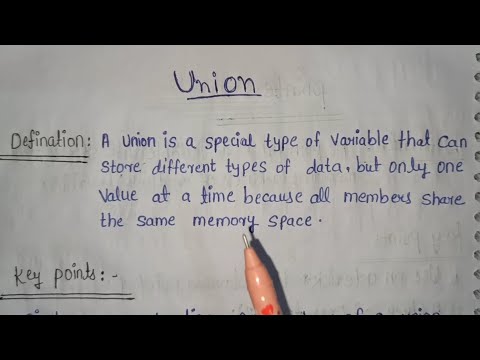 Union
Defination: A Union is a special type of Variable that Can
Store different types of data, but only one
Value at a time because all members share
the same memory space.
Key points:-